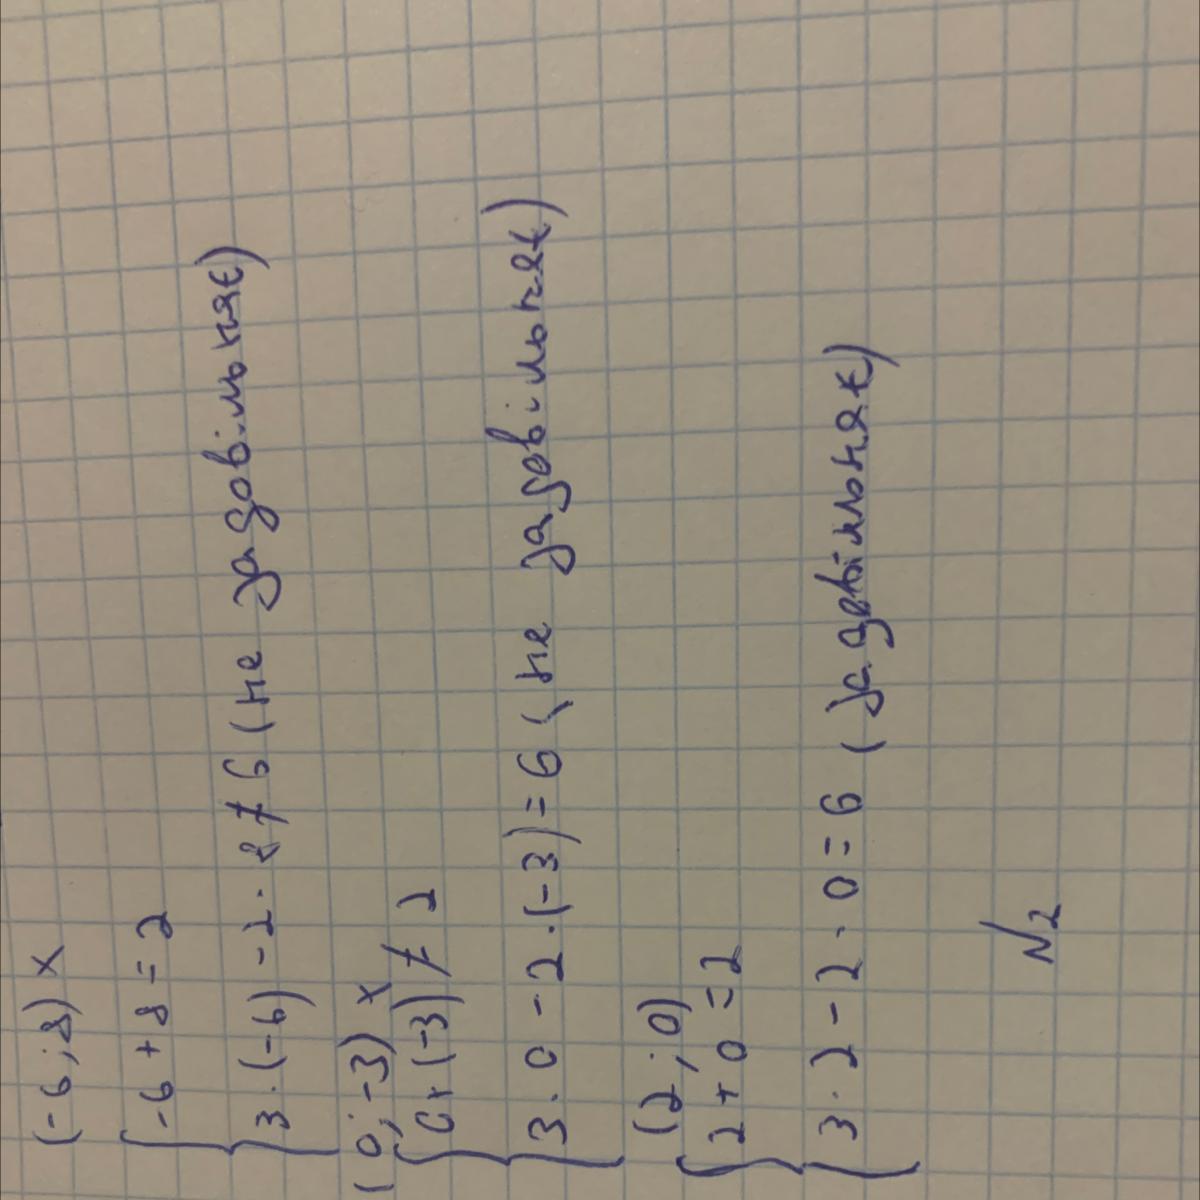 (-6; 8) ×
-6 + 8 = 2
3 · (-6) - 2 · 8 ≠ 6 (не задовільняє)
(0; -3) ×
0 + (-3) ≠ 2
3 · 0 - 2 · (-3) = 6 (не задовільняє)
(2; 0)
2 + 0 = 2
3 · 2 - 2 · 0 = 6 (задовільняє)
№2